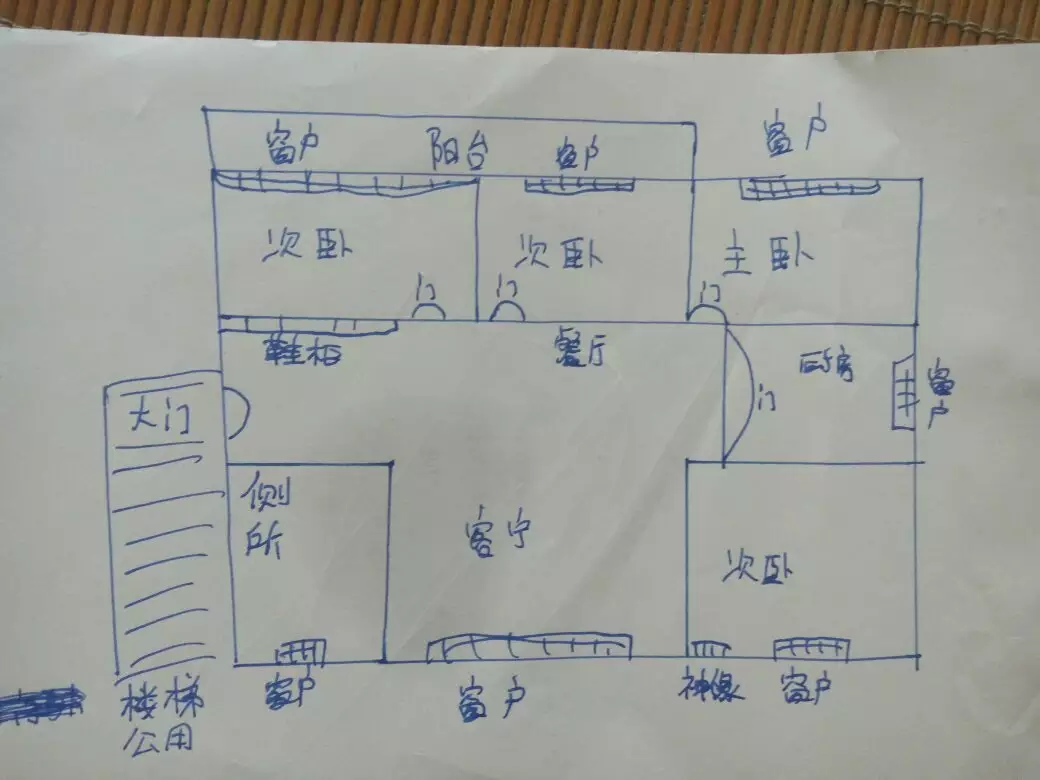 窗户
阳台
窗户
窗户
次卧
次卧
主卧
门
门
门
鞋柜
餐厅
厨房
窗户
大门
门
侧
所
客宁
次卧
窗户
窗户
神像
窗户
楼梯
公用